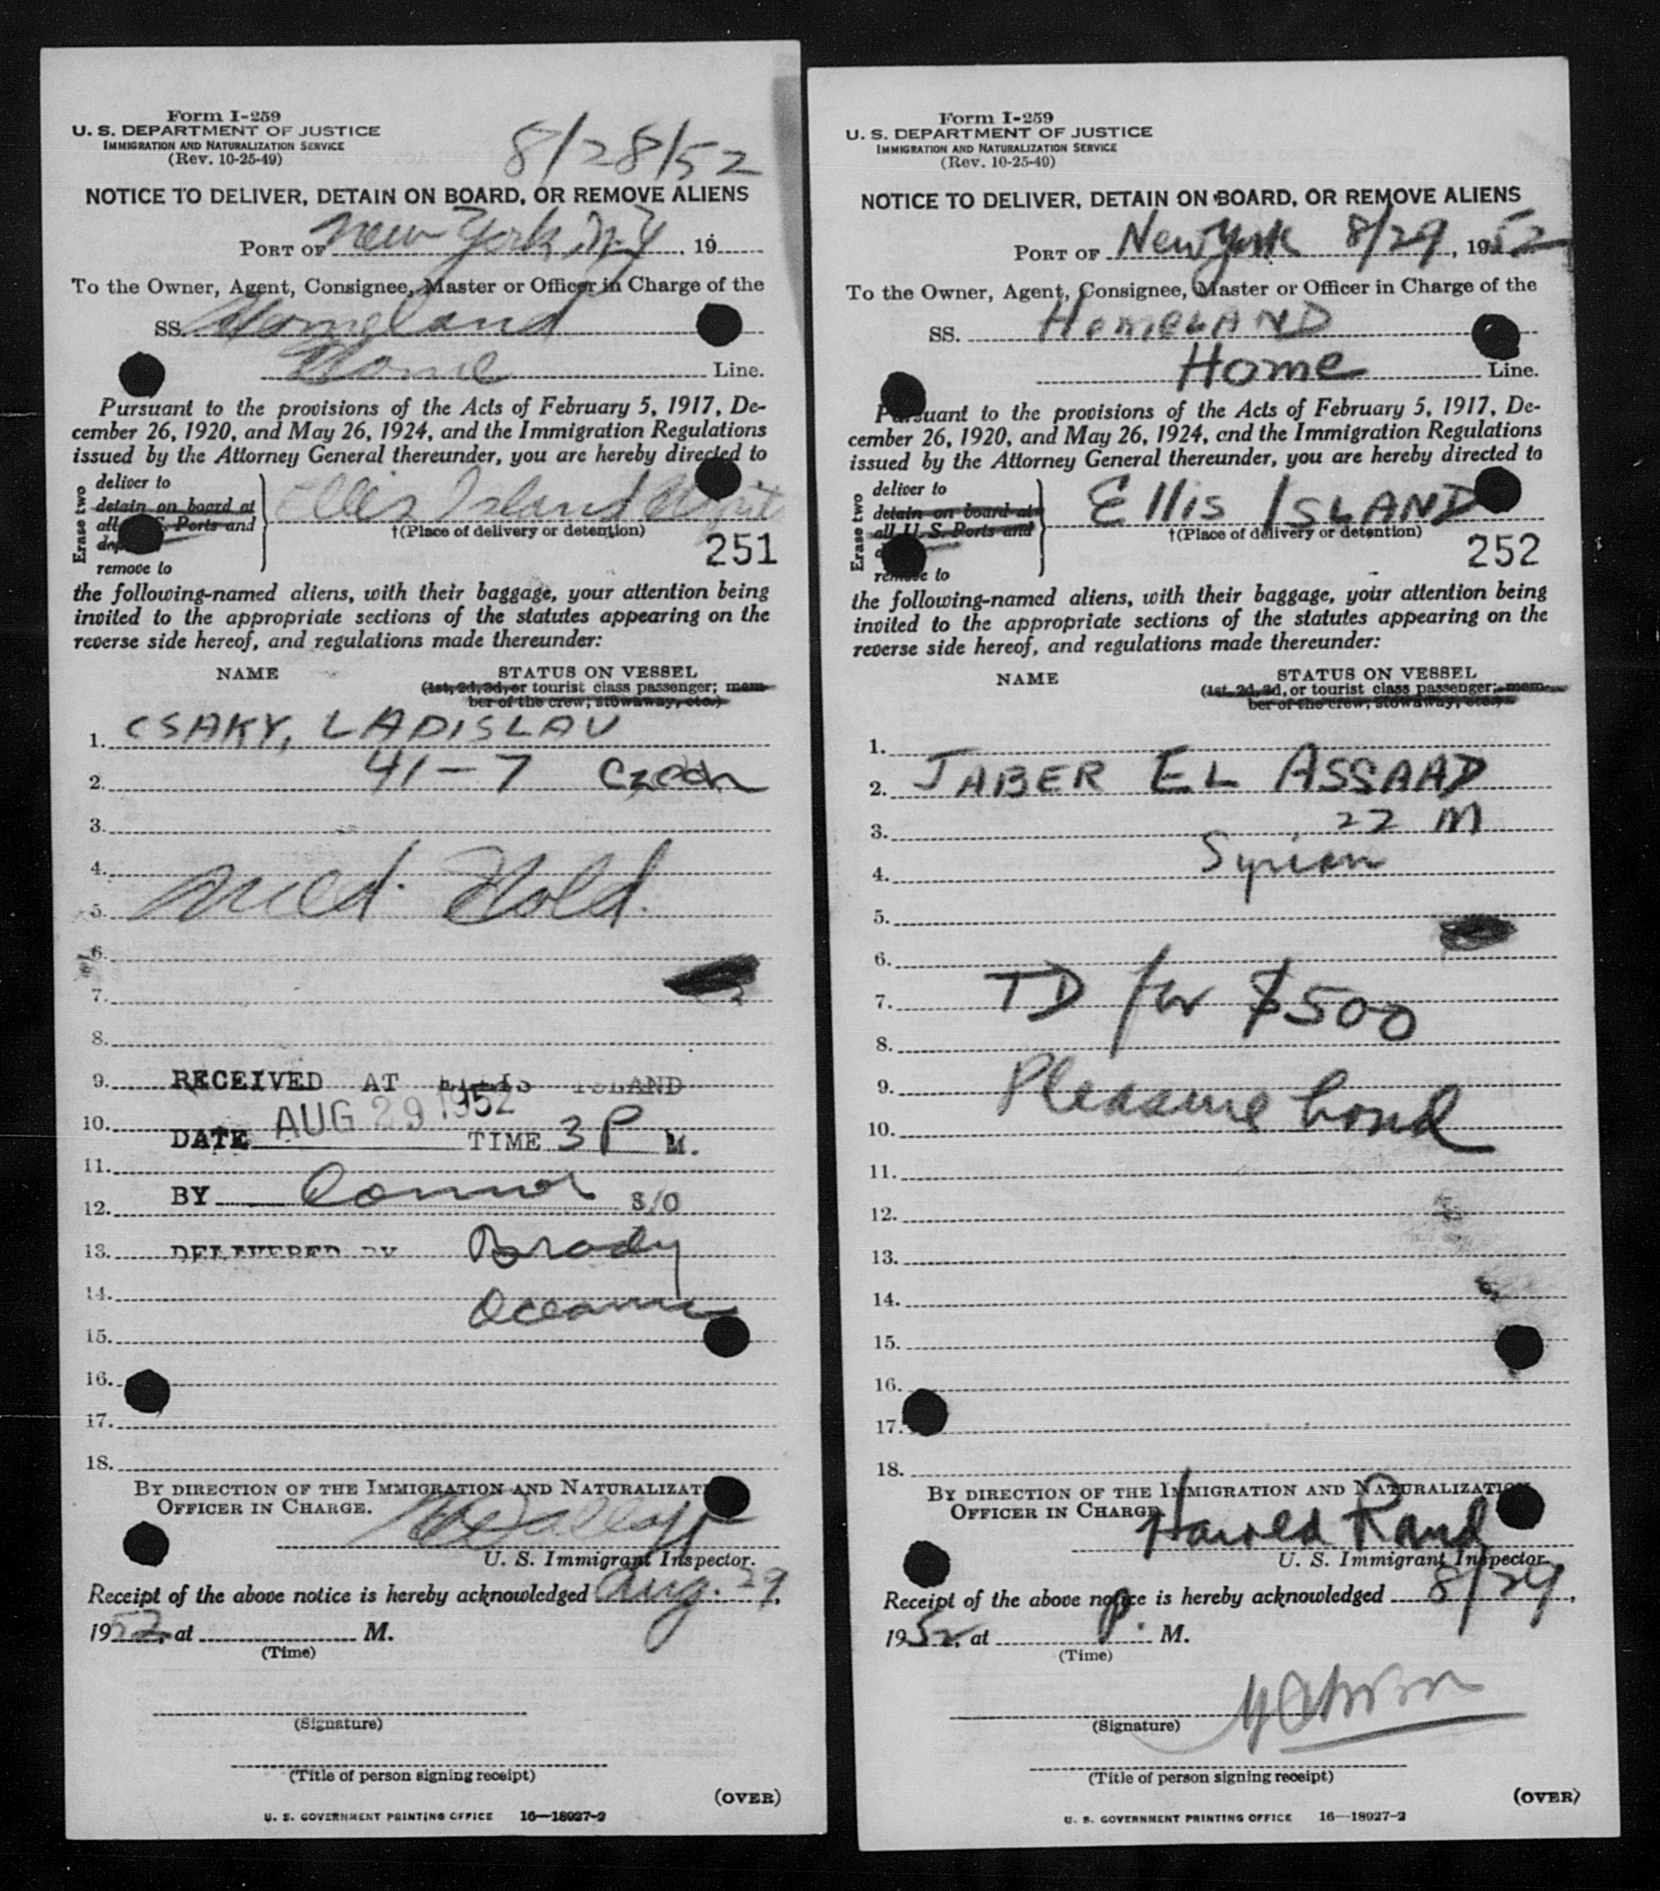 Form I-259
U. S. DEPARTMENT OF JUSTICE
IMMIGRATION AND NATURALIZATION SERVICE
(Rev. 10-25-49)
8/28/52
NOTICE TO DELIVER, DETAIN ON BOARD, OR REMOVE ALIENS
PORT OF New York, N.Y., 19
To the Owner, Agent, Consignee, Master or Officer in Charge of the
SS. Homeland
Home Line.
Pursuant to the provisions of the Acts of February 5, 1917, De-
cember 26, 1920, and May 26, 1924, and the Immigration Regulations
issued by the Attorney General thereunder, you are hereby directed to
Erase two
deliver to
detain on board at
all U. S. Ports and
remove to
Ellis Island
†(Place of delivery or detention)
251
the following-named aliens, with their baggage, your attention being
invited to the appropriate sections of the statutes appearing on the
reverse side hereof, and regulations made thereunder:
NAME STATUS ON VESSEL
(1st, 2d, 3d, or tourist class passenger; mem-
ber of the crew; stowaway, etc.)
1. CSAKY, LADISLAV
2. 41-7 Czech
3.
4.
5. Med. Hold.
6.
7.
8.
9. RECEIVED AT ELLIS ISLAND
10. DATE AUG 29 1952 TIME 3 P M.
11.
12. BY Connor S/O
13. DELIVERED BY Brady
14. Oceanic
15.
16.
17.
18.
BY DIRECTION OF THE IMMIGRATION AND NATURALIZATION
OFFICER IN CHARGE.
U. S. Immigrant Inspector.
Receipt of the above notice is hereby acknowledged Aug. 29,
1952, at M.
(Time)
(Signature)
(Title of person signing receipt)
(OVER)
U. S. GOVERNMENT PRINTING OFFICE 16—18027-2
Form I-259
U. S. DEPARTMENT OF JUSTICE
IMMIGRATION AND NATURALIZATION SERVICE
(Rev. 10-25-49)
NOTICE TO DELIVER, DETAIN ON BOARD, OR REMOVE ALIENS
PORT OF New York 8/29, 1952
To the Owner, Agent, Consignee, Master or Officer in Charge of the
SS. HOMELAND
Home Line.
Pursuant to the provisions of the Acts of February 5, 1917, De-
cember 26, 1920, and May 26, 1924, and the Immigration Regulations
issued by the Attorney General thereunder, you are hereby directed to
Erase two
deliver to
detain on board at
all U. S. Ports and
remove to
Ellis ISLAND
†(Place of delivery or detention)
252
the following-named aliens, with their baggage, your attention being
invited to the appropriate sections of the statutes appearing on the
reverse side hereof, and regulations made thereunder:
NAME STATUS ON VESSEL
(1st, 2d, 3d, or tourist class passenger; mem-
ber of the crew; stowaway, etc.)
1.
2. JABER EL ASSAAD
3. 22 M
4. Syrian
5.
6.
7. TD for $500
8.
9. Pleasure bond
10.
11.
12.
13.
14.
15.
16.
17.
18.
BY DIRECTION OF THE IMMIGRATION AND NATURALIZATION
OFFICER IN CHARGE.
Harold Rand
U. S. Immigrant Inspector.
Receipt of the above notice is hereby acknowledged 8/29,
1952, at P. M.
(Time)
(Signature)
(Title of person signing receipt)
(OVER)
U. S. GOVERNMENT PRINTING OFFICE 16—18027-2